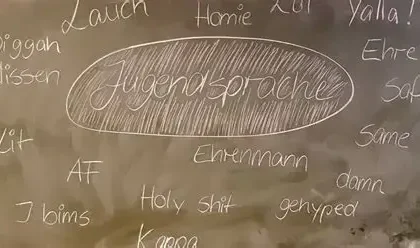 Lauch
Homie
Yalla!
Diggah
Wissen
Jugendsprache
Ehre
Saf
Lit
Same
Ehrenmann
AF
damn
I bims
Holy shit
gehyped
Kappa